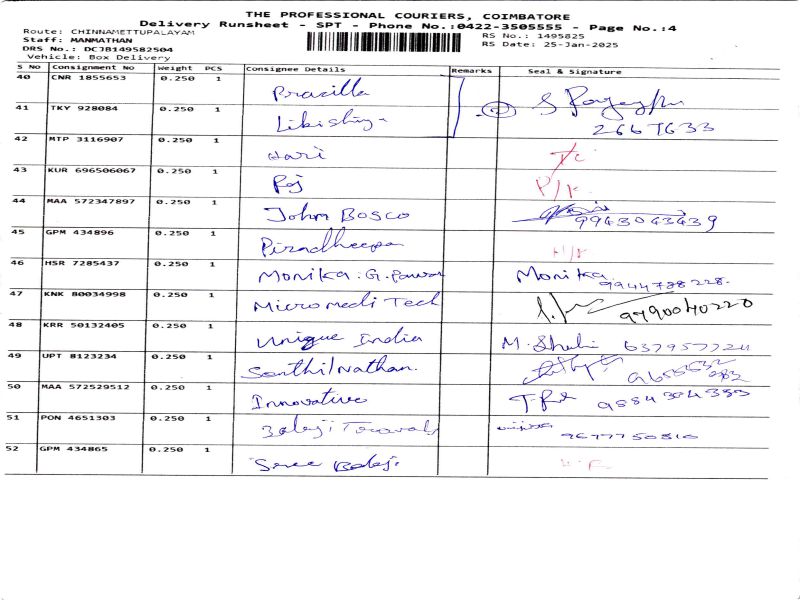 THE PROFESSIONAL COURIERS, COIMBATORE
Delivery Runsheet - SPT - Phone No.:0422-3505555 - Page No.:4
Route: CHINNAMETTUPALAYAM
RS No.: 1495825
Staff: MANMATHAN
RS Date: 25-Jan-2025
DRS No.: DCJB149582504
Vehicle: Box Delivery
S No Consignment No Weight PCS Consignee Details Remarks Seal & Signature
40 CNR 1855653 0.250 1
41 TKY 928084 0.250 1 2667633
42 MTP 3116907 0.250 1 Hari
43 KUR 696506067 0.250 1 Raj
44 MAA 572347897 0.250 1 John Bosco 9943043439
45 GPM 434896 0.250 1 Piradheepa
46 HSR 7285437 0.250 1 Monika.G. Monika 9944788228.
47 KNK 80034998 0.250 1 Micromedi Tech 9790040220
48 KRR 50132405 0.250 1 Unique India M.
49 UPT 8123234 0.250 1 Senthil Nathan.
50 MAA 572529512 0.250 1 Innovative
51 PON 4651303 0.250 1 Balaji 9677750810
52 GPM 434865 0.250 1 Sree Balaji